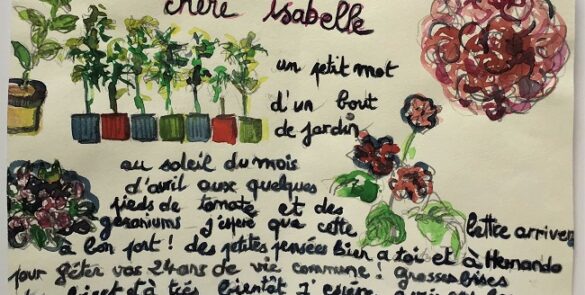 chère Isabelle
un petit mot
d'un bout
de jardin
au soleil du mois
d'avril aux quelques
pieds de tomate et des
geraniums j'espère que cette lettre arrivera
à bon port ! des petites pensées bien a toi et à Hernando
pour fêter vos 24 ans de vie commune ! grosses bises
et à très bientôt j'espère